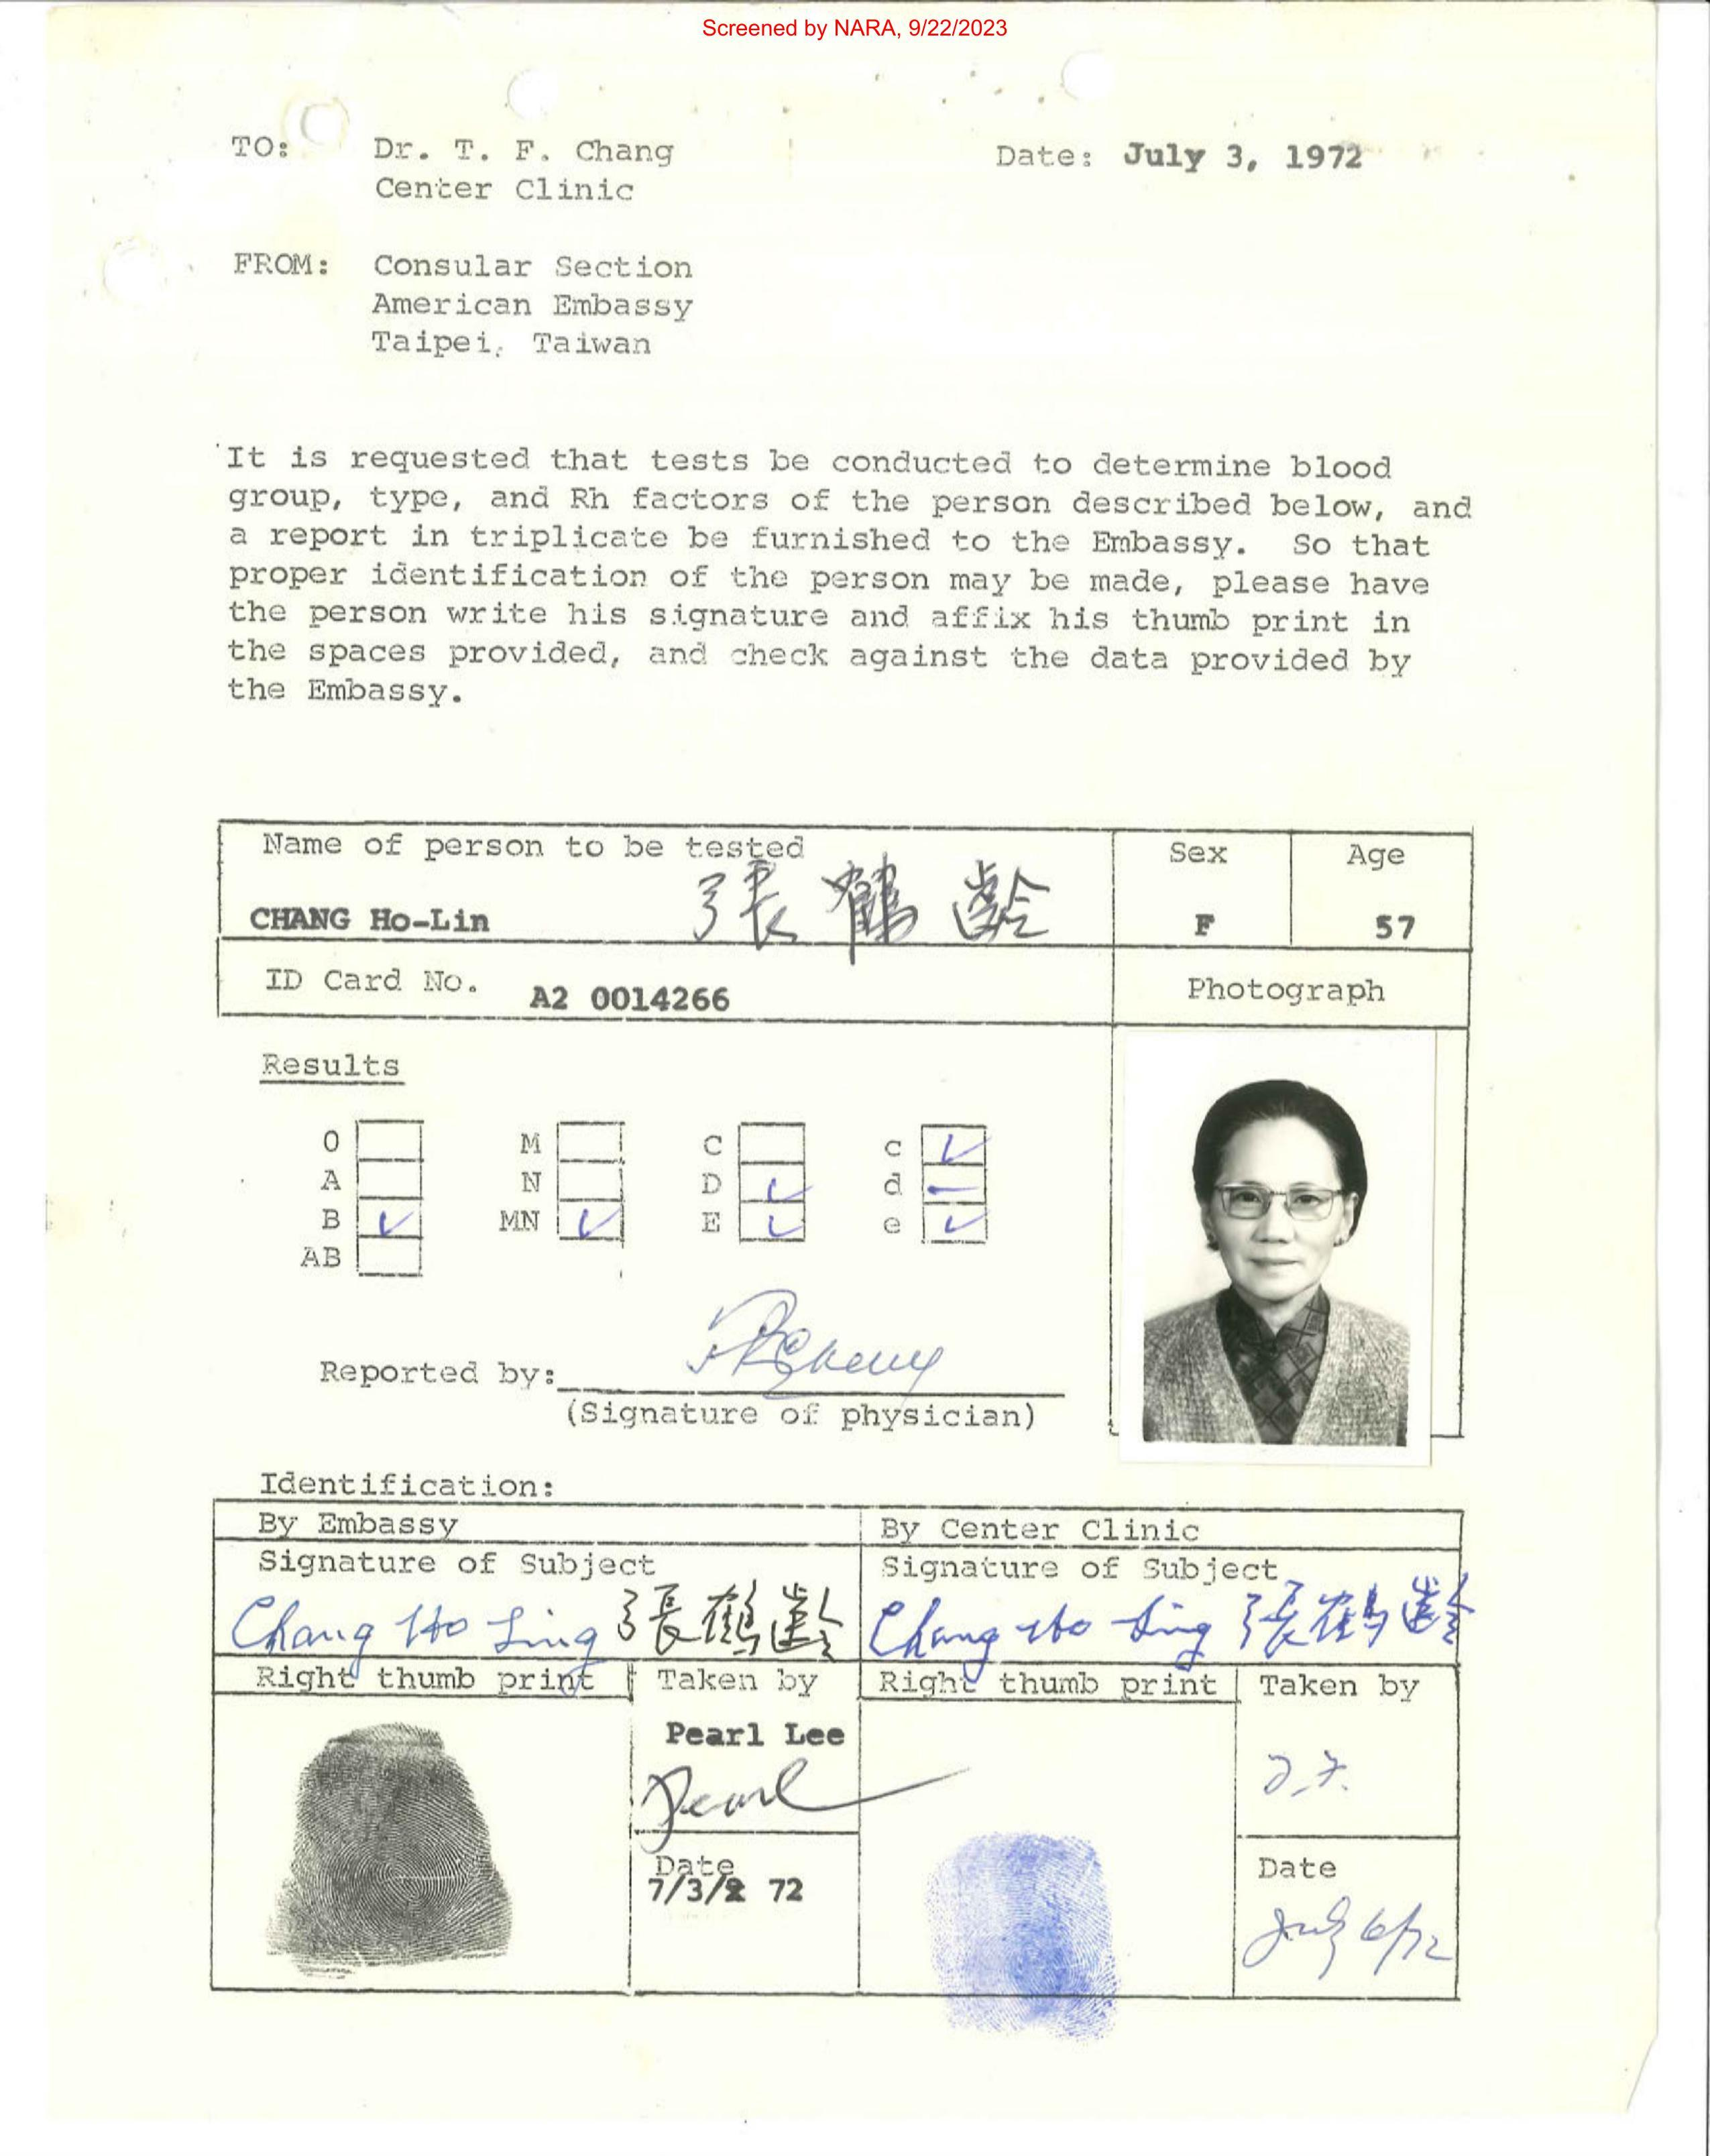 Screened by NARA, 9/22/2023
TO: Dr. T. F. Chang Date: July 3, 1972
Center Clinic
FROM: Consular Section
American Embassy
Taipei, Taiwan
It is requested that tests be conducted to determine blood
group, type, and Rh factors of the person described below, and
a report in triplicate be furnished to the Embassy. So that
proper identification of the person may be made, please have
the person write his signature and affix his thumb print in
the spaces provided, and check against the data provided by
the Embassy.
Name of person to be tested Sex Age
CHANG Ho-Lin 張鶴齡 F 57
ID Card No. A2 0014266 Photograph
Results
O M C c ✓
A N D ✓ d –
B ✓ MN ✓ E ✓ e ✓
AB
Reported by:
(Signature of physician)
Identification:
By Embassy By Center Clinic
Signature of Subject Signature of Subject
Chang Ho Ling 張鶴齡 Chang Ho Ling 張鶴齡
Right thumb print Taken by Right thumb print Taken by
Pearl Lee
Pearl T.F.
Date Date
7/3/ 72 July 6/72